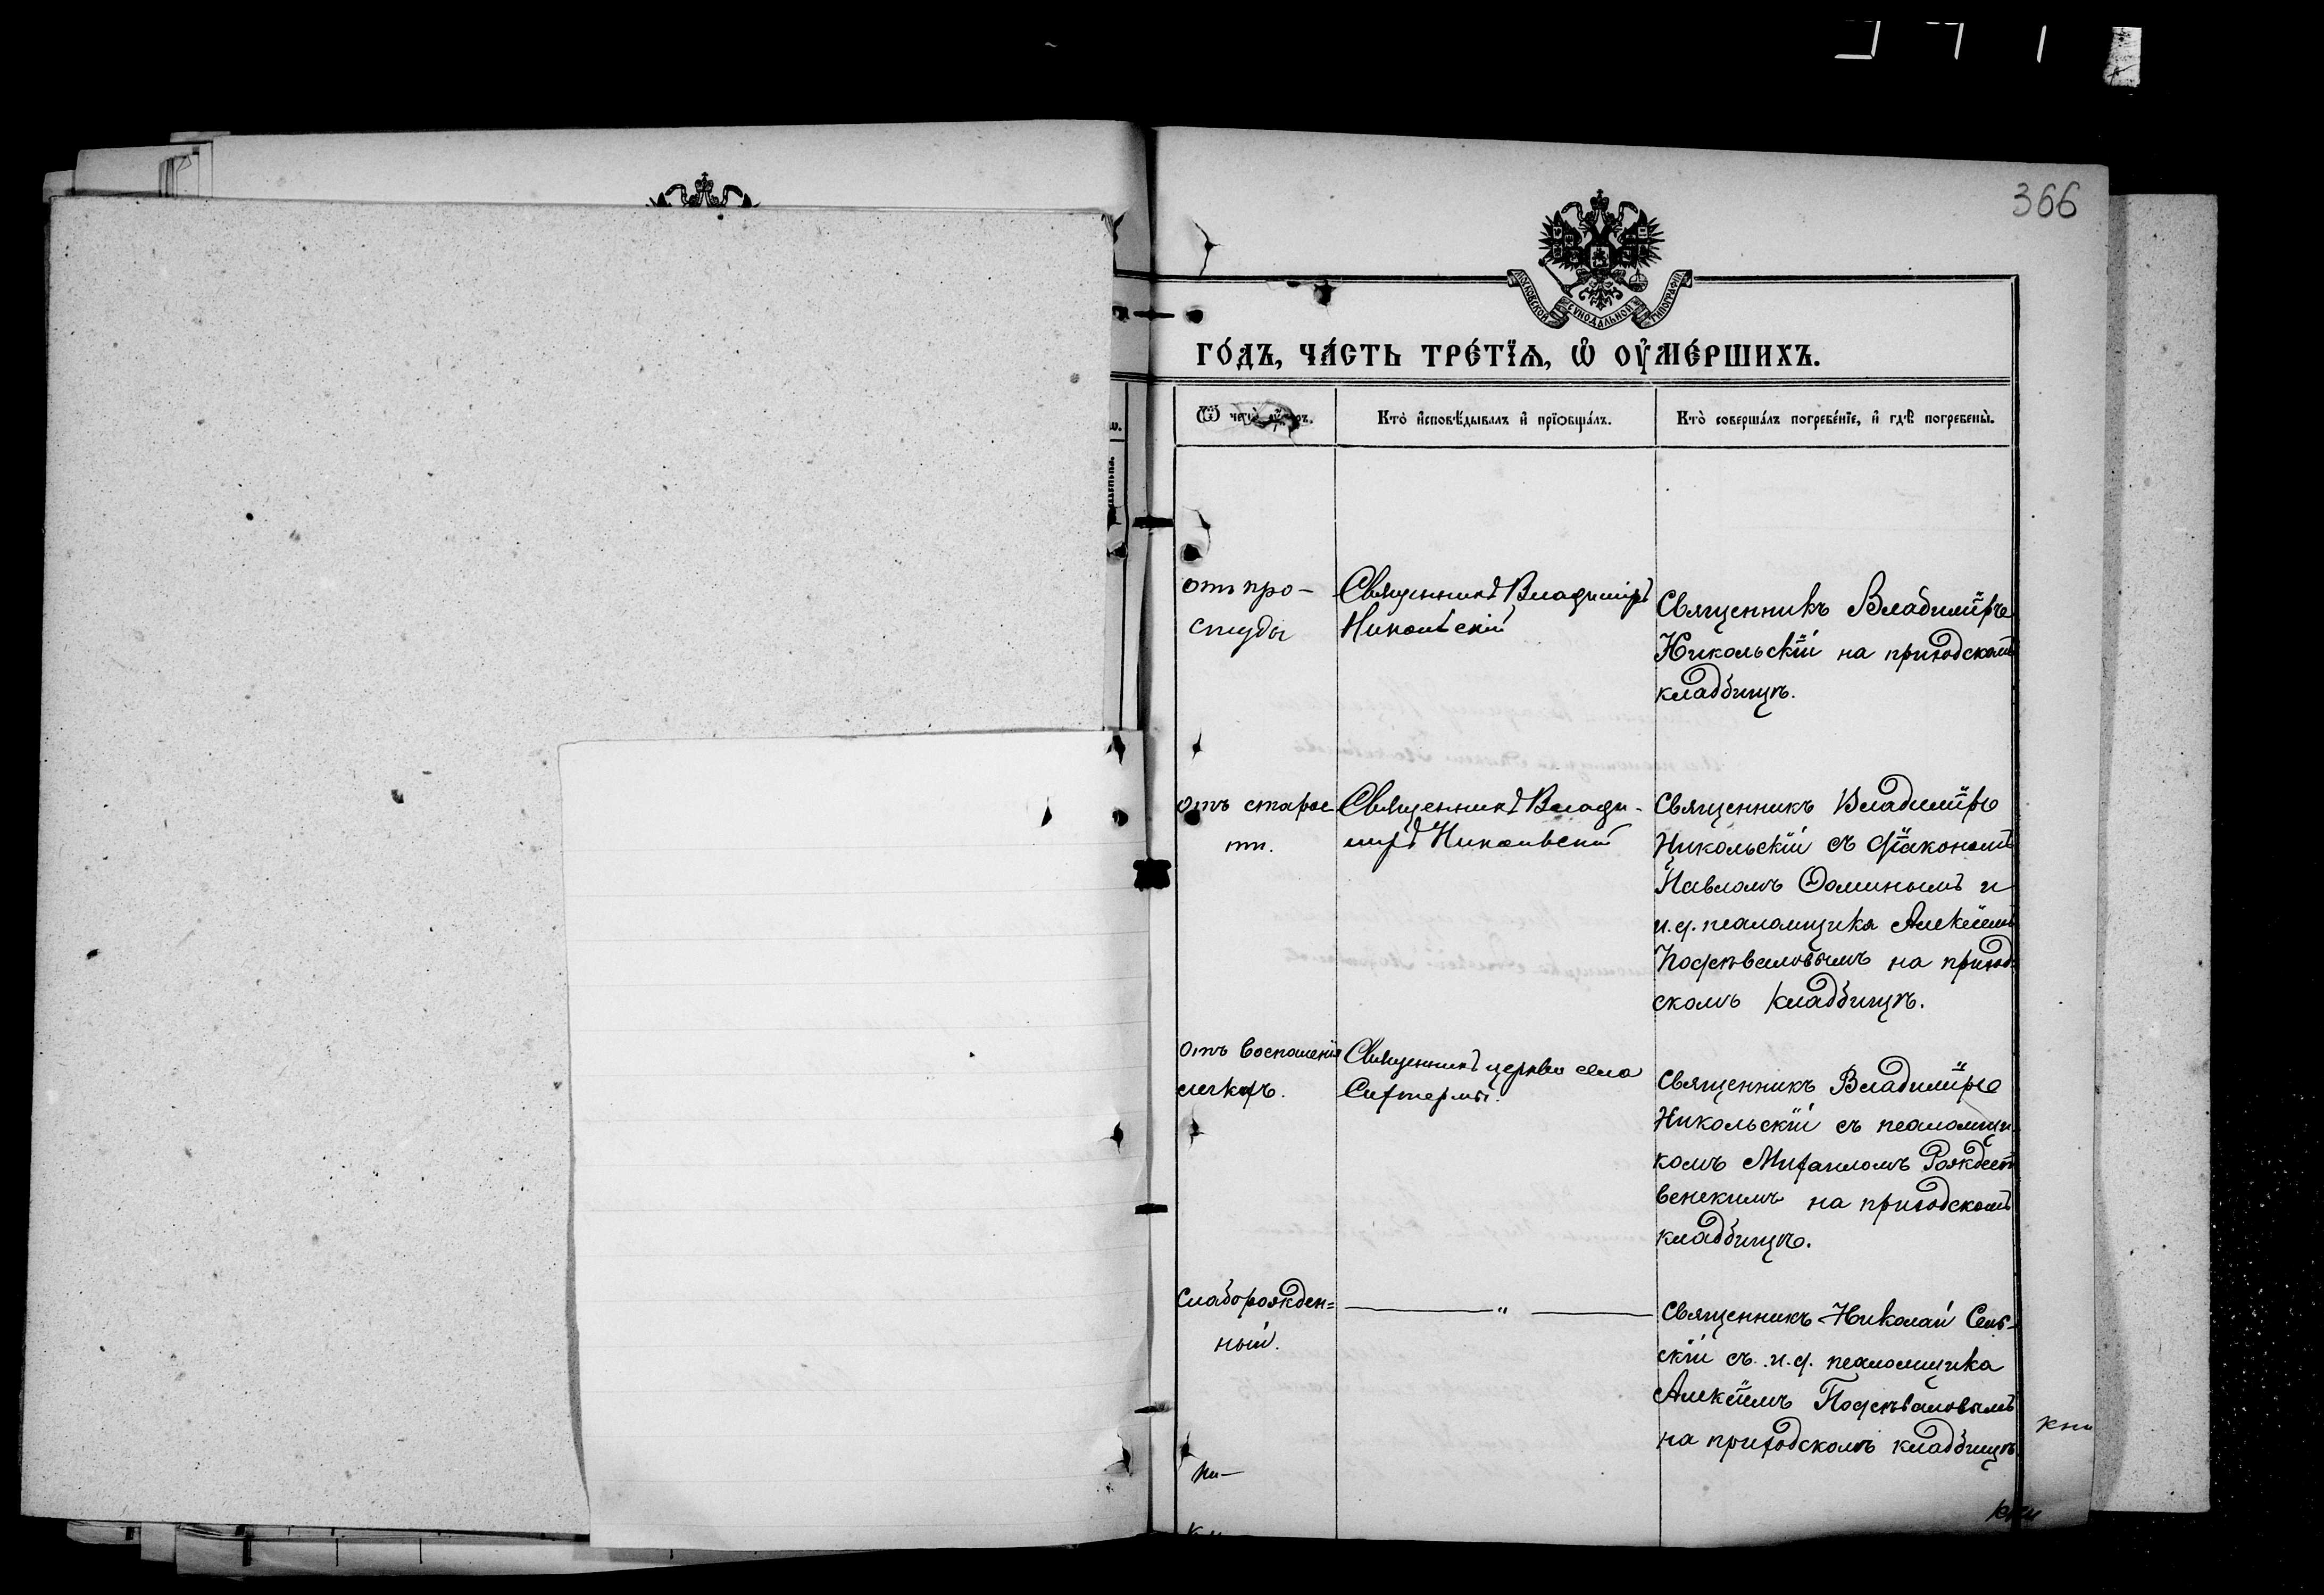 366
МОСКОВСКОЙ СѴНОДАЛЬНОЙ ТИПОГРАФІИ
ГО́ДЪ, ЧА́СТЬ ТРЕ́ТЇѦ, Ѡ҆ ОУ҆МЕ́РШИХЪ.
Ѿ чегѡ̀
Кто̀ и҆сповѣ́дывалъ и҆ прїѡбща́лъ.
Кто̀ соверша́лъ погребе́нїе, и҆ гдѣ̀ погребены̀.
отъ про-
студы
Священникъ Владиміръ
Никольскій
Священникъ Владиміръ
Никольскій на приходскомъ
кладбищѣ.
отъ старос
ти.
Священникъ Влади-
міръ Никольскій
Священникъ Владиміръ
Никольскій съ діакономъ
Павломъ Ѳоминымъ и
и.д. псаломщика Алексѣемъ
Подсѣваловымъ на приход-
скомъ кладбищѣ.
отъ воспаленія
легкихъ.
Священникъ церкви села
Ситтермы.
Священникъ Владиміръ
Никольскій съ псаломщи-
комъ Михаиломъ Рождест
венскимъ на приходскомъ
кладбищѣ.
Слаборожден=
ный.
— " —
Священникъ Николай Сель-
скій съ и.д. псаломщика
Алексѣемъ Подсѣваловымъ
на приходскомъ кладбищѣ